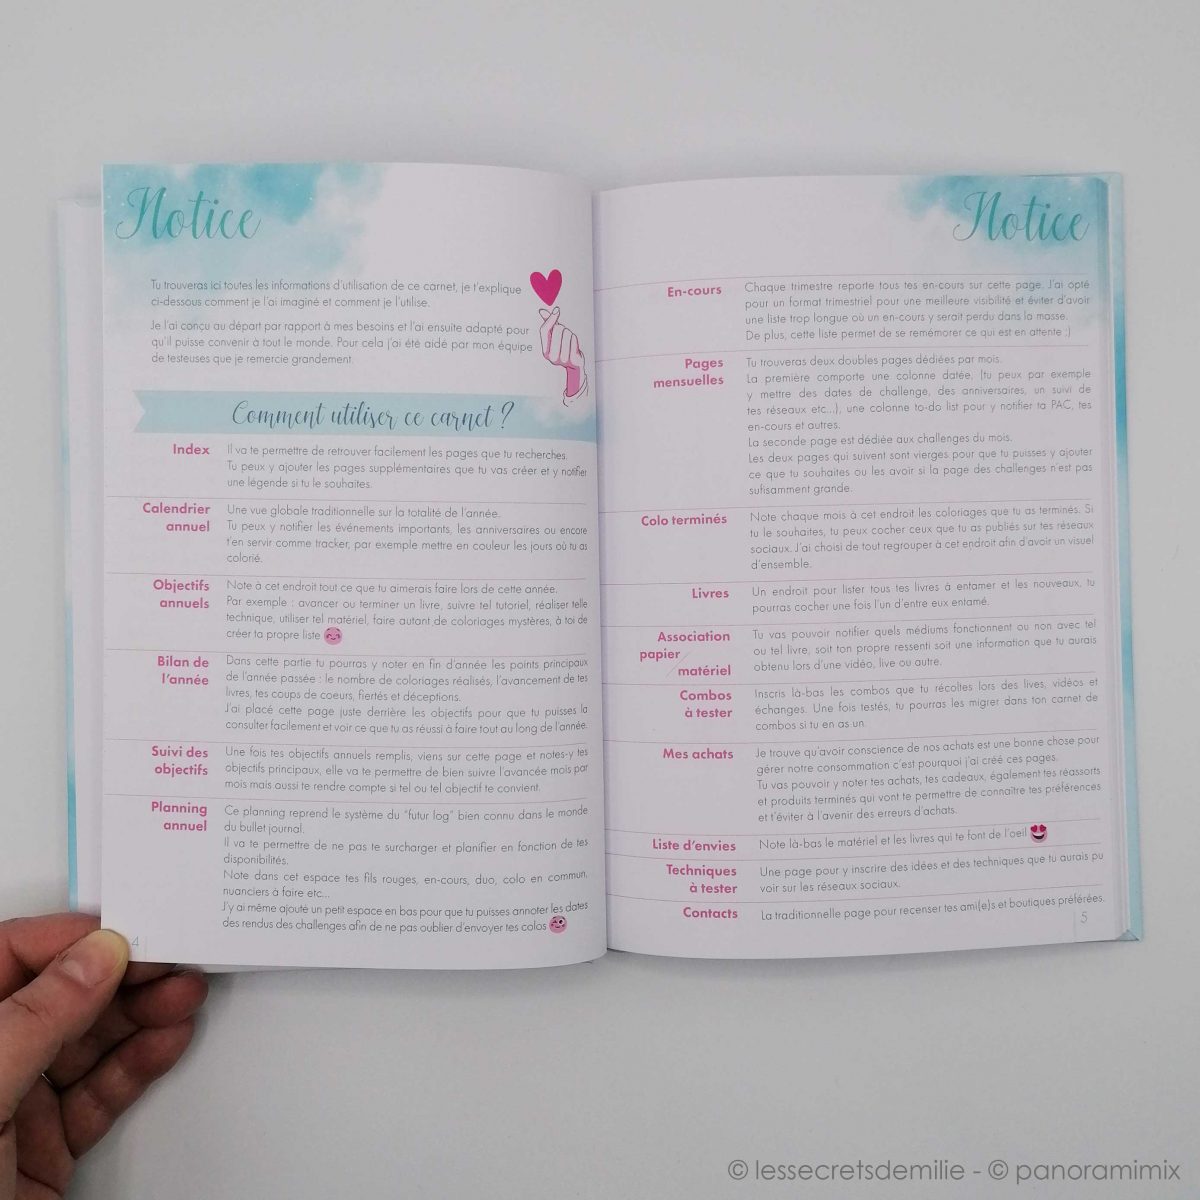 Notice
Tu trouveras ici toutes les informations d'utilisation de ce carnet, je t'explique
ci-dessous comment je l'ai imaginé et comment je l'utilise.
Je l'ai conçu au départ par rapport à mes besoins et l'ai ensuite adapté pour
qu'il puisse convenir à tout le monde. Pour cela j'ai été aidé par mon équipe
de testeuses que je remercie grandement.
Comment utiliser ce carnet ?
Index
Il va te permettre de retrouver facilement les pages que tu recherches.
Tu peux y ajouter les pages supplémentaires que tu vas créer et y notifier
une légende si tu le souhaites.
Calendrier
annuel
Une vue globale traditionnelle sur la totalité de l'année.
Tu peux y notifier les événements importants, les anniversaires ou encore
t'en servir comme tracker, par exemple mettre en couleur les jours où tu as
colorié.
Objectifs
annuels
Note à cet endroit tout ce que tu aimerais faire lors de cette année.
Par exemple : avancer ou terminer un livre, suivre tel tutoriel, réaliser telle
technique, utiliser tel matériel, faire autant de coloriages mystères, à toi de
créer ta propre liste
Bilan de
l'année
Dans cette partie tu pourras y noter en fin d'année les points principaux
de l'année passée : le nombre de coloriages réalisés, l'avancement de tes
livres, tes coups de coeurs, fiertés et déceptions.
J'ai placé cette page juste derrière les objectifs pour que tu puisses la
consulter facilement et voir ce que tu as réussi à faire tout au long de l'année.
Suivi des
objectifs
Une fois tes objectifs annuels remplis, viens sur cette page et notes-y tes
objectifs principaux, elle va te permettre de bien suivre l'avancée mois par
mois mais aussi te rendre compte si tel ou tel objectif te convient.
Planning
annuel
Ce planning reprend le système du "futur log" bien connu dans le monde
du bullet journal.
Il va te permettre de ne pas te surcharger et planifier en fonction de tes
disponibilités.
Note dans cet espace tes fils rouges, en-cours, duo, colo en commun,
nuanciers à faire etc...
J'y ai même ajouté un petit espace en bas pour que tu puisses annoter les dates
des rendus des challenges afin de ne pas oublier d'envoyer tes colos
4
Notice
En-cours
Chaque trimestre reporte tous tes en-cours sur cette page. J'ai opté
pour un format trimestriel pour une meilleure visibilité et éviter d'avoir
une liste trop longue où un en-cours y serait perdu dans la masse.
De plus, cette liste permet de se remémorer ce qui est en attente :)
Pages
mensuelles
Tu trouveras deux doubles pages dédiées par mois.
La première comporte une colonne datée, (tu peux par exemple
y mettre des dates de challenge, des anniversaires, un suivi de
tes réseaux etc...), une colonne to-do list pour y notifier ta PAC, tes
en-cours et autres.
La seconde page est dédiée aux challenges du mois.
Les deux pages qui suivent sont vierges pour que tu puisses y ajouter
ce que tu souhaites ou les avoir si la page des challenges n'est pas
sufisamment grande.
Colo terminés
Note chaque mois à cet endroit les coloriages que tu as terminés. Si
tu le souhaites, tu peux cocher ceux que tu as publiés sur tes réseaux
sociaux. J'ai choisi de tout regrouper à cet endroit afin d'avoir un visuel
d'ensemble.
Livres
Un endroit pour lister tous tes livres à entamer et les nouveaux, tu
pourras cocher une fois l'un d'entre eux entamé.
Association
papier /
matériel
Tu vas pouvoir notifier quels médiums fonctionnent ou non avec tel
ou tel livre, soit ton propre ressenti soit une information que tu aurais
obtenu lors d'une vidéo, live ou autre.
Combos
à tester
Inscris là-bas les combos que tu récoltes lors des lives, vidéos et
échanges. Une fois testés, tu pourras les migrer dans ton carnet de
combos si tu en as un.
Mes achats
Je trouve qu'avoir conscience de nos achats est une bonne chose pour
gérer notre consommation c'est pourquoi j'ai créé ces pages.
Tu vas pouvoir y noter tes achats, tes cadeaux, également tes réassorts
et produits terminés qui vont te permettre de connaître tes préférences
et t'éviter à l'avenir des erreurs d'achats.
Liste d'envies
Note là-bas le matériel et les livres qui te font de l'oeil
Techniques
à tester
Une page pour y inscrire des idées et des techniques que tu aurais pu
voir sur les réseaux sociaux.
Contacts
La traditionnelle page pour recenser tes ami(e)s et boutiques préférées.
5
© lessecretsdemilie - © panoramimix